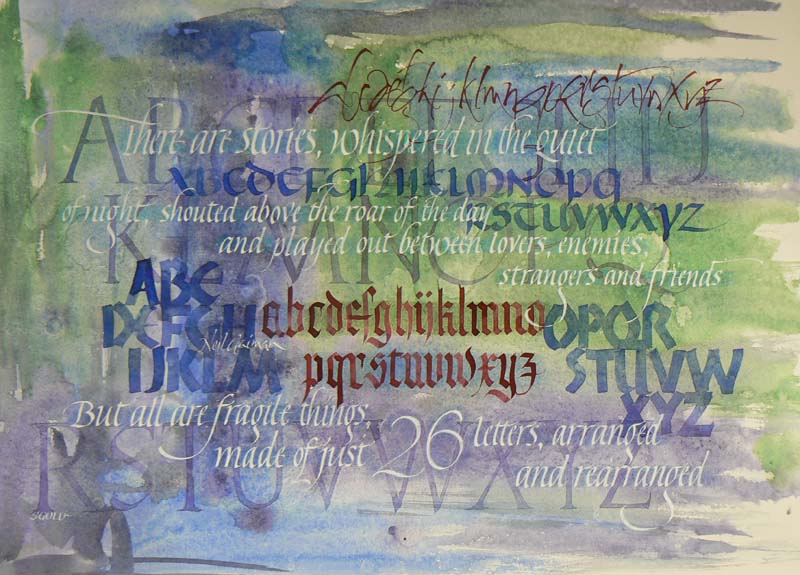 abcdefghijklmnopqrstuvwxyz
ABCDEFGHIJ
There are stories, whispered in the quiet
ABCDEFGHIJKLMNOPQ
of night, shouted above the roar of the day
RSTUVWXYZ
KLMNOPQ
and played out between lovers, enemies,
strangers and friends
ABC
DEFGH
IJKLM
Neil Gaiman
abcdefghijklmno
pqrstuvwxyz
NOPQR
STUVW
XYZ
But all are fragile things,
RSTUVWXYZ
made of just 26 letters, arranged
and rearranged
S GULLA